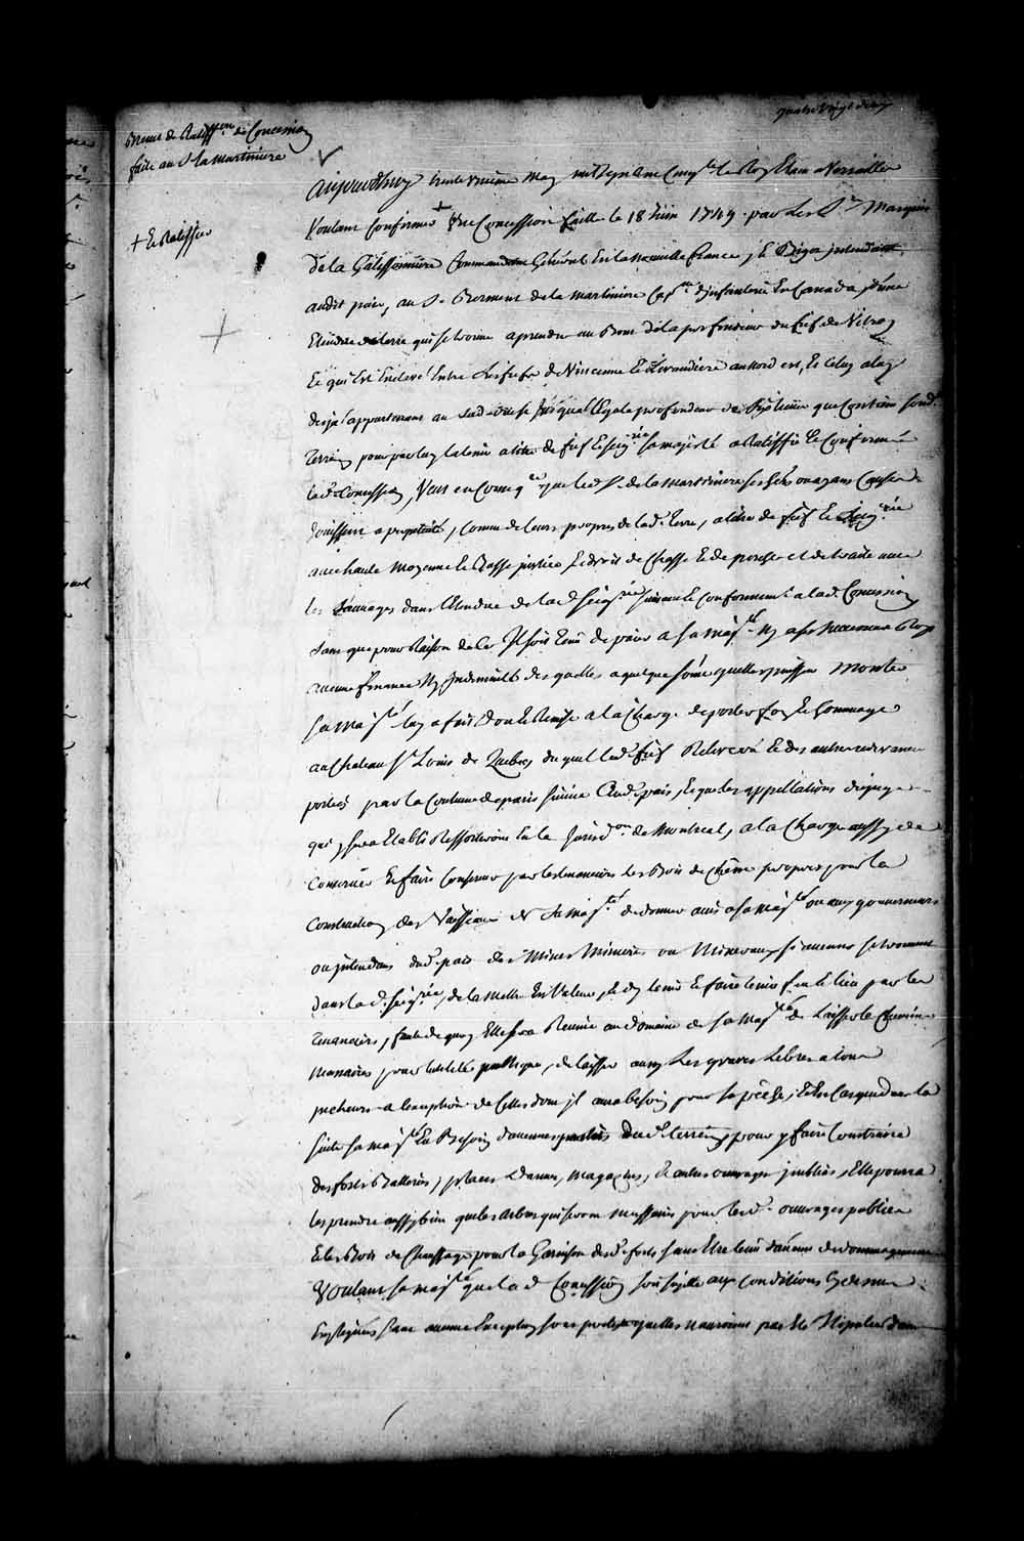 quatre vingt deux
Brevet de Ratiff.on de Concession
faite au S. la martiniere
+ Et Ratiffier
aujourdhuy trente unième May mil Sept Cent Cinq.te le Roy Etant a Versailles
Voulant Confirmer + Une Concession faitte le 18 Juin 1749 par Les S.rs Marquis
de la Galissonniere Commandant Général En la Nouvelle france, et Bigot jntendant
audit païs, au S. Bermens de la martiniere Cap.ne d'jnfanterie En Canada, d'une
Etendue de terre qui se trouve a prendre au Bout de la profondeur du fief de Vitray
Et qui Est Enclavé Entre Les fiefs de Vincenne Et Livaudiere au nord est, Et Celuy a luy
deja appartenant au Sud Ouest jusqu'a L'Egale profondeur de Six lieües que Contient led.
terrein pour par luy la tenir a titre de fief Et seig.rie sa majesté a Ratiffié Et Confirmé
lad.e Concession, Veut en Conseq.ce que led. S. de la martiniere ses hers ou ayans Cause en
jouissent a perpetuité, Comme de leurs propres de lad.e terre, a titre de fief Et Seig.rie
avec haute moyenne Et Basse justice Et droit de Chasse Et de pesche et de traite avec
les Sauvages dans l'Etendue de lad. Seig.rie suivant Et Conformement a lad. Concession
sans que pour Raison de ce Il soit tenû de païer a sa Maj.té ny a ses successeurs Roys
aucune finance Ny jndemnité des quelles a quelque sôme quelles puissent monter
sa Maj.té luy a fait don Et Remise a la Charge de porter foy Et hommage
au Chateau S.t Louis de Quebec duquel led. fief Relevera Et des autres redevances
portées par la Coutume de paris suivie Aud. païs, Et que les appellations du juge
qui y sera Etabli Ressortiront En la Jurisd.on de Montreal, a la Charge aussy de
Conserver Et faire Conserver par les tenanciers les Bois de Chêne propres pour la
Construction des Vaisseaux de sa Maj.té de donner avis a sa Maj.té ou aux gouverneurs
ou jntendans dud. païs des Mines Minieres ou Mineraux si aucuns se trouvent
dans lad. Seig.rie, de la mettre En Valeur, Et d'y tenir Et faire tenir feu Et lieu par les
tenanciers, faute de quoy Elle sera Reunie au domaine de sa Maj.té de Laisser les Chemins
necessaires pour l'utilité publique, de laisser aussy Les greves Libres a tous
pêcheurs a l'exception de Celles dont jl aura besoin pour sa pêche, Et En Cas que dans la
suite sa maj.té Eut Besoin d'aucunes parties dud. terrein pour y faire Construire
des forts Batteries, places d'armes, magazins, Et autres ouvrages publics, Elle pourra
les prendre aussy bien que les arbres qui seront necessaires pour lesd. ouvrages publics
Et les Bois de Chauffage pour la Garnison desd. forts sans Etre tenu d'aucun dedommagement
Voulant sa maj.té que lad. Concession soit sujette aux Conditions Cy dessus
Enoncées sans aucune Exception sous pretexte qu'elles nauroient pas Eté Stipulées dans